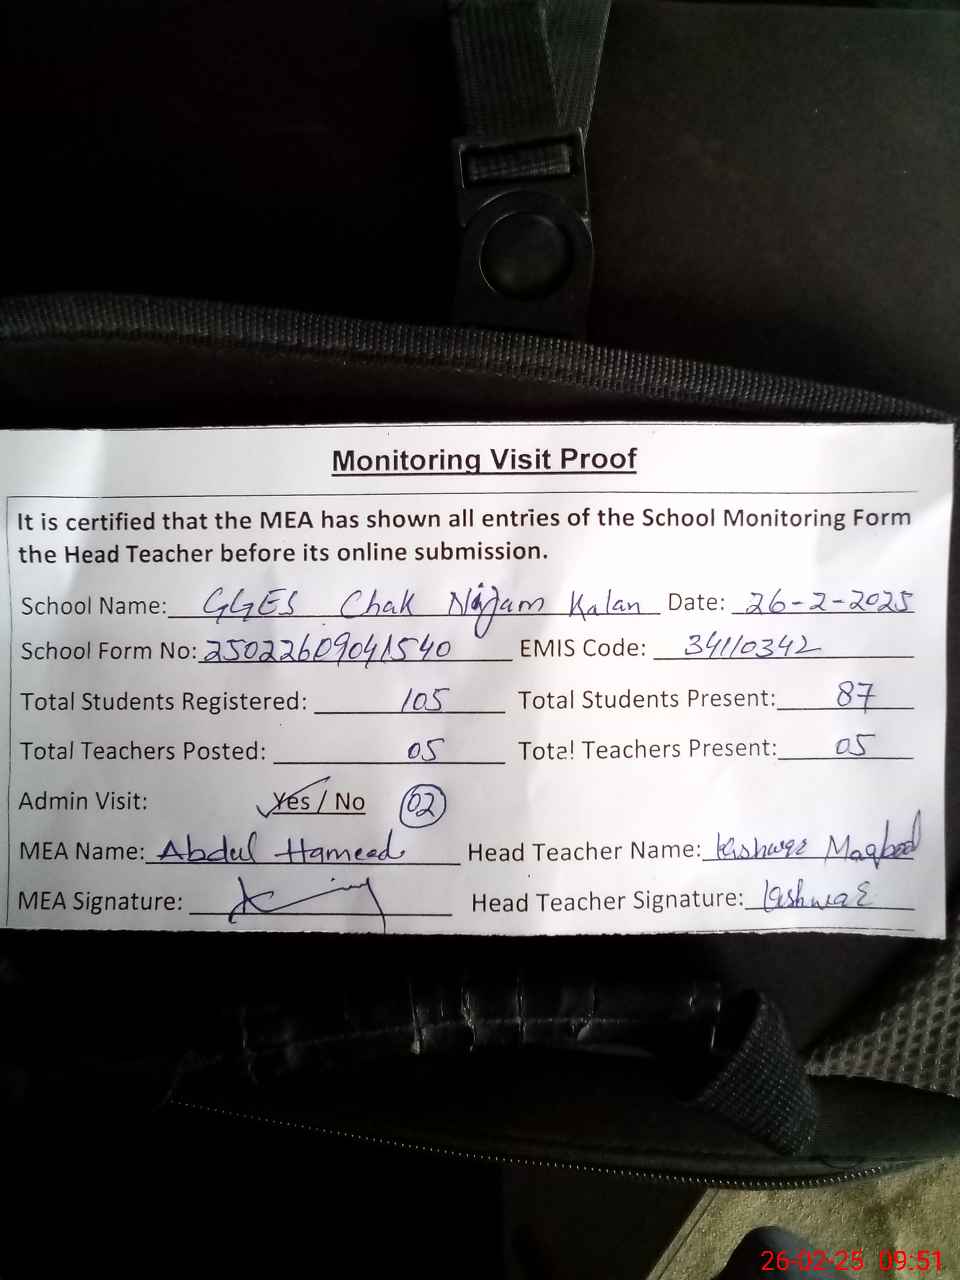 Monitoring Visit Proof
It is certified that the MEA has shown all entries of the School Monitoring Form
the Head Teacher before its online submission.
School Name: GGES Chak Nizam Kalan Date: 26-2-2025
School Form No: 25022609041540 EMIS Code: 34110342
Total Students Registered: 105 Total Students Present: 87
Total Teachers Posted: 05 Total Teachers Present: 05
Admin Visit: Yes / No 02
MEA Name: Abdul Hameed Head Teacher Name: Kishwar Maqbool
MEA Signature: Head Teacher Signature: Kishwar
26-02-25 09:51